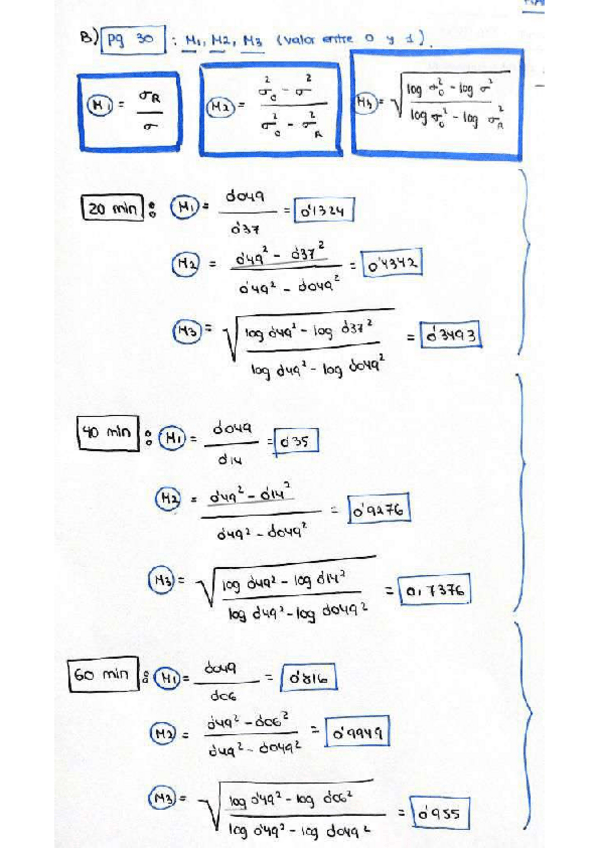 B) pg 30 : M₁, M₂, M₃ (valor entre 0 y 1).
M₁ = σR / σ
M₂ = σ₀² - σ² / σ₀² - σR²
M₃ = √ log σ₀² - log σ² / log σ₀² - log σR²
20 min : M₁ = 0'049 / 0'37 = 0'1324
M₂ = 0'49² - 0'37² / 0'49² - 0'049² = 0'4342
M₃ = √ log 0'49² - log 0'37² / log 0'49² - log 0'049² = 0'3493
40 min : M₁ = 0'049 / 0'14 = 0'35
M₂ = 0'49² - 0'14² / 0'49² - 0'049² = 0'9276
M₃ = √ log 0'49² - log 0'14² / log 0'49² - log 0'049² = 0,7376
60 min : M₁ = 0'049 / 0'06 = 0'816
M₂ = 0'49² - 0'06² / 0'49² - 0'049² = 0'9949
M₃ = √ log 0'49² - log 0'06² / log 0'49² - log 0'049² = 0'955